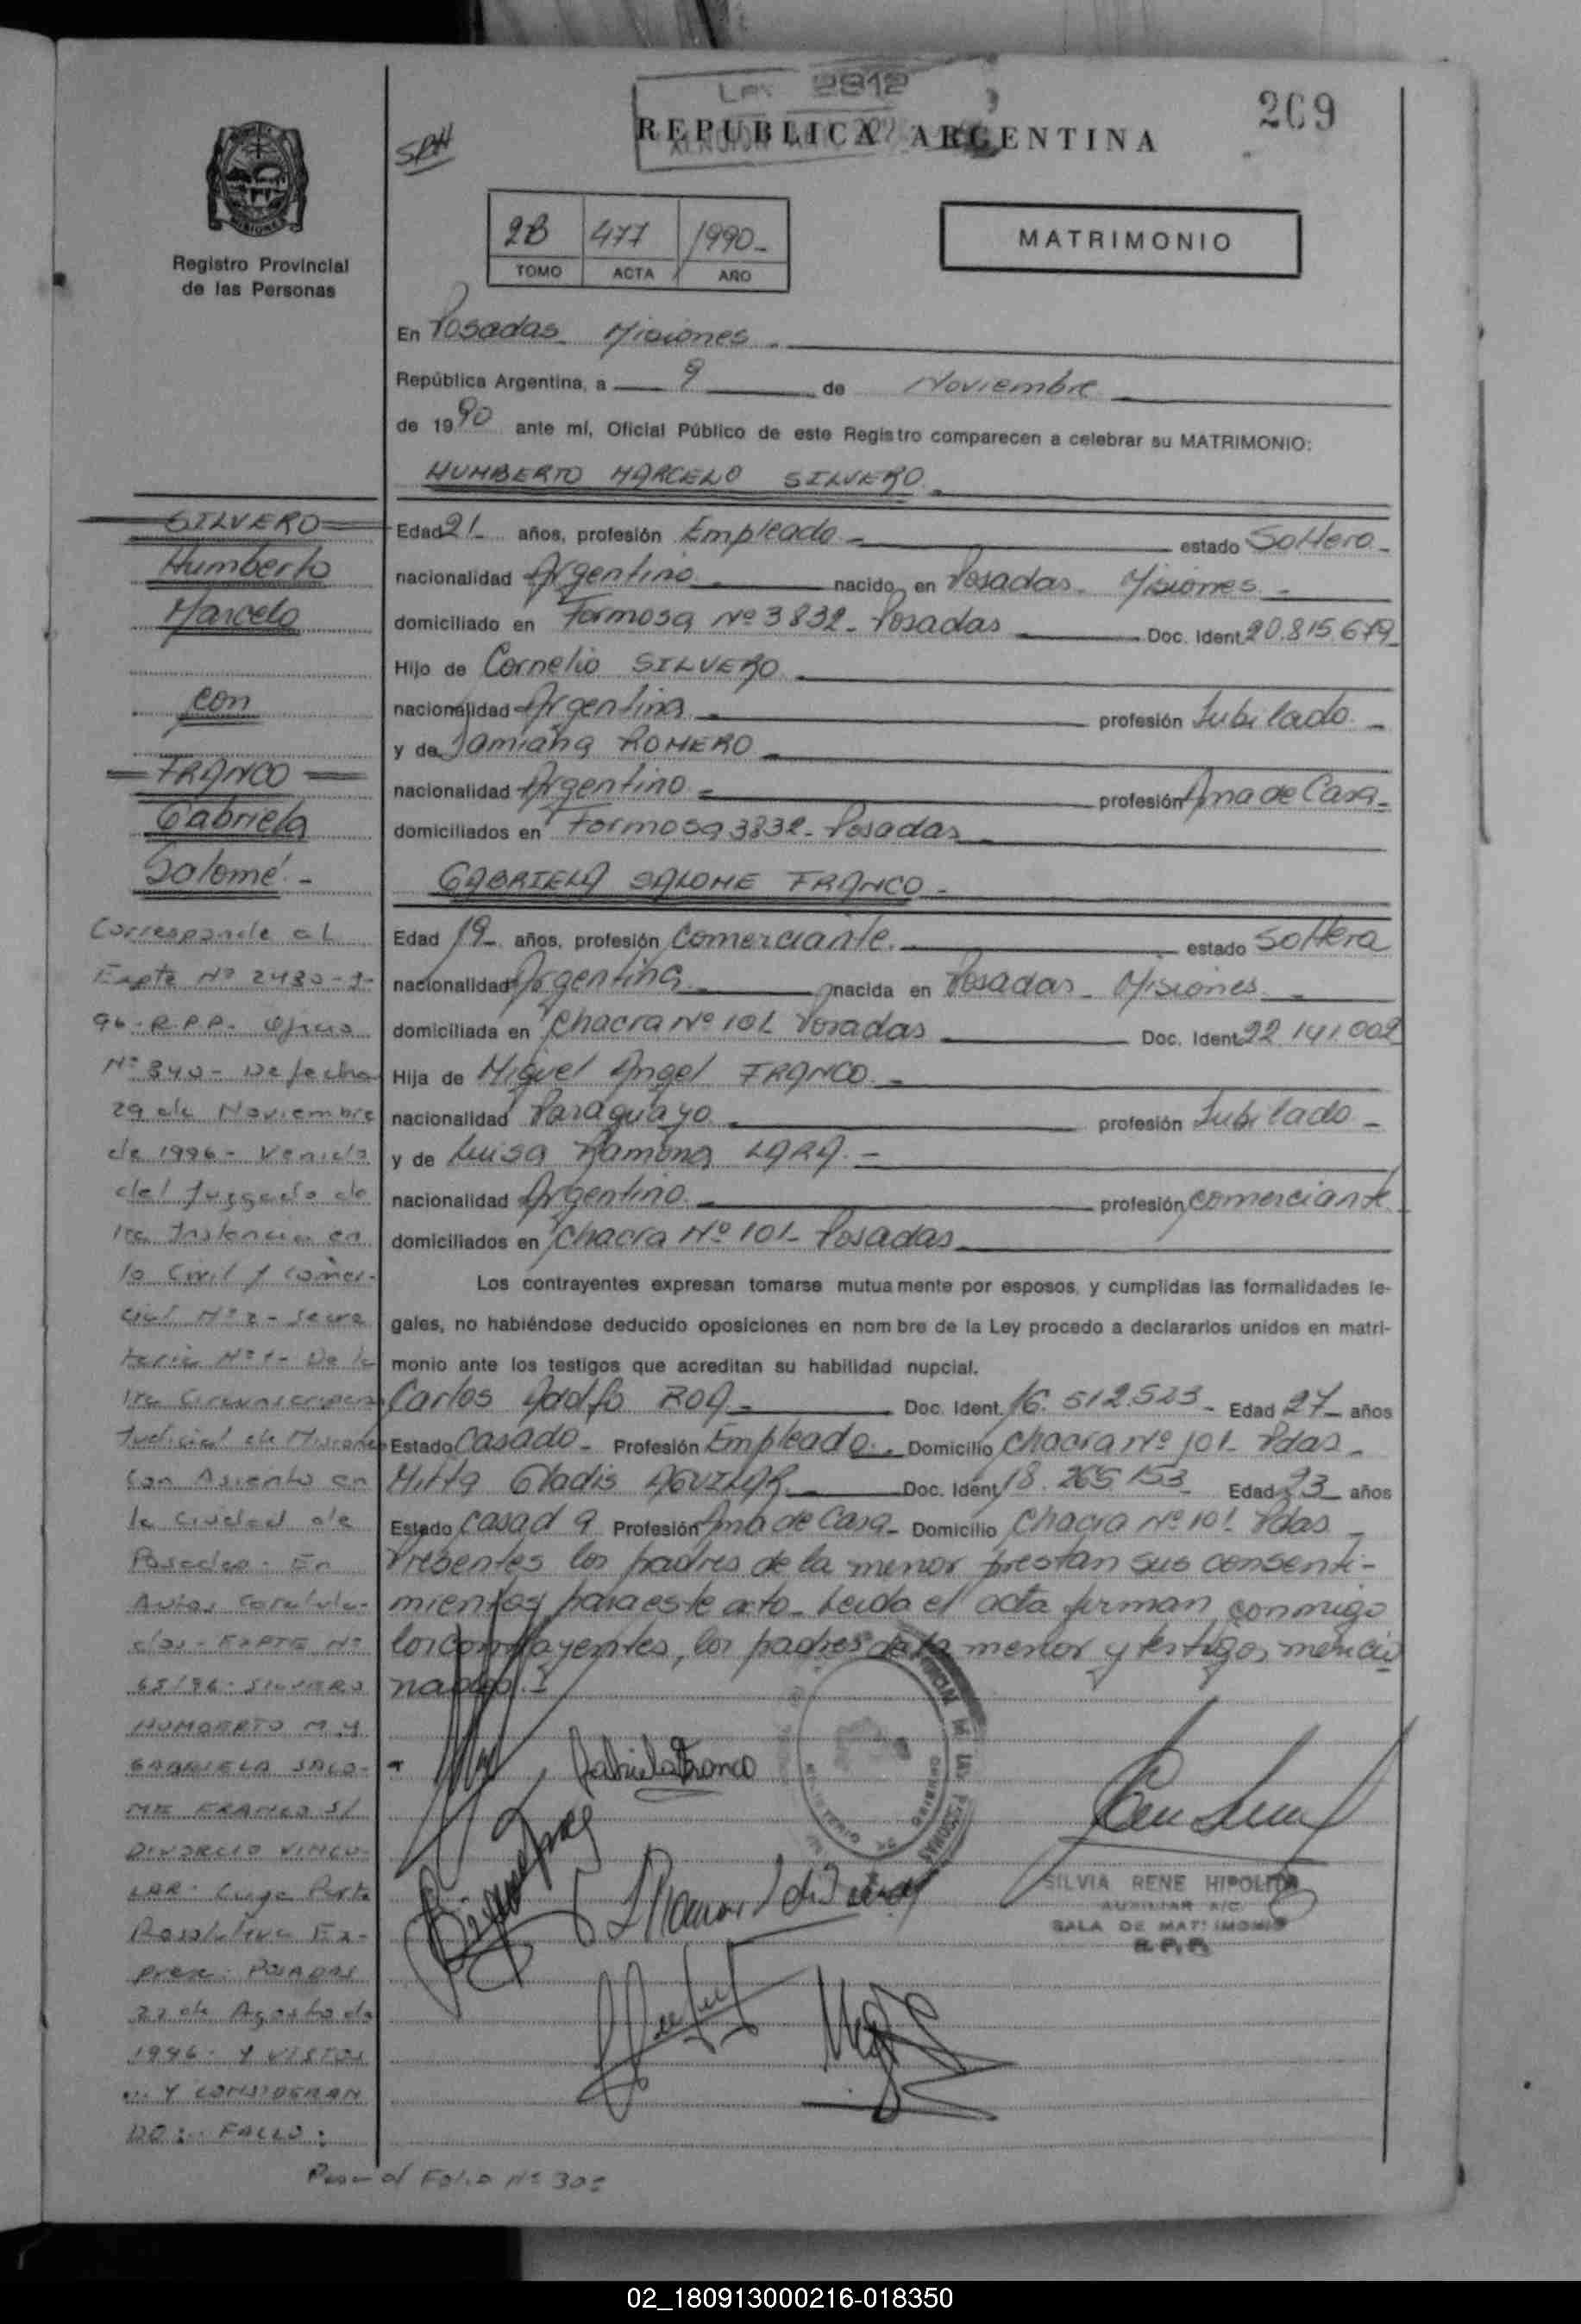 LEY 2912
REPUBLICA ARGENTINA
269
Registro Provincial
de las Personas
2B 477 1990-
TOMO ACTA AÑO
MATRIMONIO
En Posadas Misiones.
República Argentina, a 9 de Noviembre
de 1990 ante mí, Oficial Público de este Registro comparecen a celebrar su MATRIMONIO:
HUMBERTO MARCELO SILVERO
Edad 21 años, profesión Empleado estado Soltero
nacionalidad Argentino nacido en Posadas Misiones
domiciliado en Formosa Nº 3832- Posadas Doc. Ident. 20.815.679
Hijo de Cornelio SILVERO
nacionalidad Argentina profesión Jubilado
y de Damiana ROMERO
nacionalidad Argentino profesión Ama de Casa
domiciliados en Formosa 3832- Posadas
GABRIELA SALOME FRANCO
Edad 19 años, profesión Comerciante. estado Soltera
nacionalidad Argentina nacida en Posadas Misiones
domiciliada en Chacra Nº 101 Posadas Doc. Ident. 22.141.002
Hija de Miguel Angel FRANCO
nacionalidad Paraguayo profesión Jubilado
y de Luisa Ramona LARA.
nacionalidad Argentino profesión comerciante
domiciliados en Chacra Nº 101- Posadas
Los contrayentes expresan tomarse mutuamente por esposos, y cumplidas las formalidades le-
gales, no habiéndose deducido oposiciones en nombre de la Ley procedo a declararlos unidos en matri-
monio ante los testigos que acreditan su habilidad nupcial.
Carlos Adolfo ROA Doc. Ident. 16.512.523 Edad 27 años
Estado Casado Profesión Empleado Domicilio Chacra Nº 101- Pdas
Mirta Gladis AGUILAR Doc. Ident. 18.265.153 Edad 23 años
Estado casada Profesión Ama de Casa Domicilio Chacra Nº 101 Pdas
Presentes los padres de la menor prestan sus consenti-
mientos para este acto- Leída el acta firman conmigo
los contrayentes, los padres de la menor y testigos mencio
nados.
Gabriela Franco
SILVIA RENE HIPOLITO
AUXILIAR A/C
SALA DE MATRIMONIO
R.P.P.
SILVERO
Humberto
Marcelo
con
FRANCO
Gabriela
Salomé.-
Corresponde al
Expte Nº 2430-9-
96- R.P.P. Oficio
Nº 840- De fecha
29 de Noviembre
de 1996- Venido
del Juzgado de
1ra Instancia en
lo Civil y Comer-
cial Nº 2- Secre
taria Nº 1- De la
1ra Circunscripcion
Judicial de Misiones
Con Asiento en
la Ciudad de
Posadas- En
Autos Caratula-
dos- EXPTE Nº
65/96- SILVERO
HUMBERTO M. Y
GABRIELA SALO-
ME FRANCO S/
DIVORCIO VINCU-
LAR- Cuya Parte
Resolutiva Ex-
presa: POSADAS
22 de Agosto de
1996- Y VISTOS
... Y CONSIDERAN
DO:.. FALLO:
Pasa al Folio Nº
02_180913000216-018350